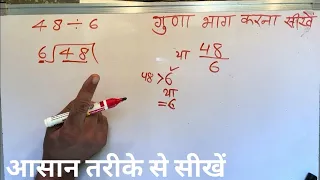 48÷6 गुणा भाग करना सीखें
6)48( या 48/6
48 > 6
या
= 6
आसान तरीके से सीखें